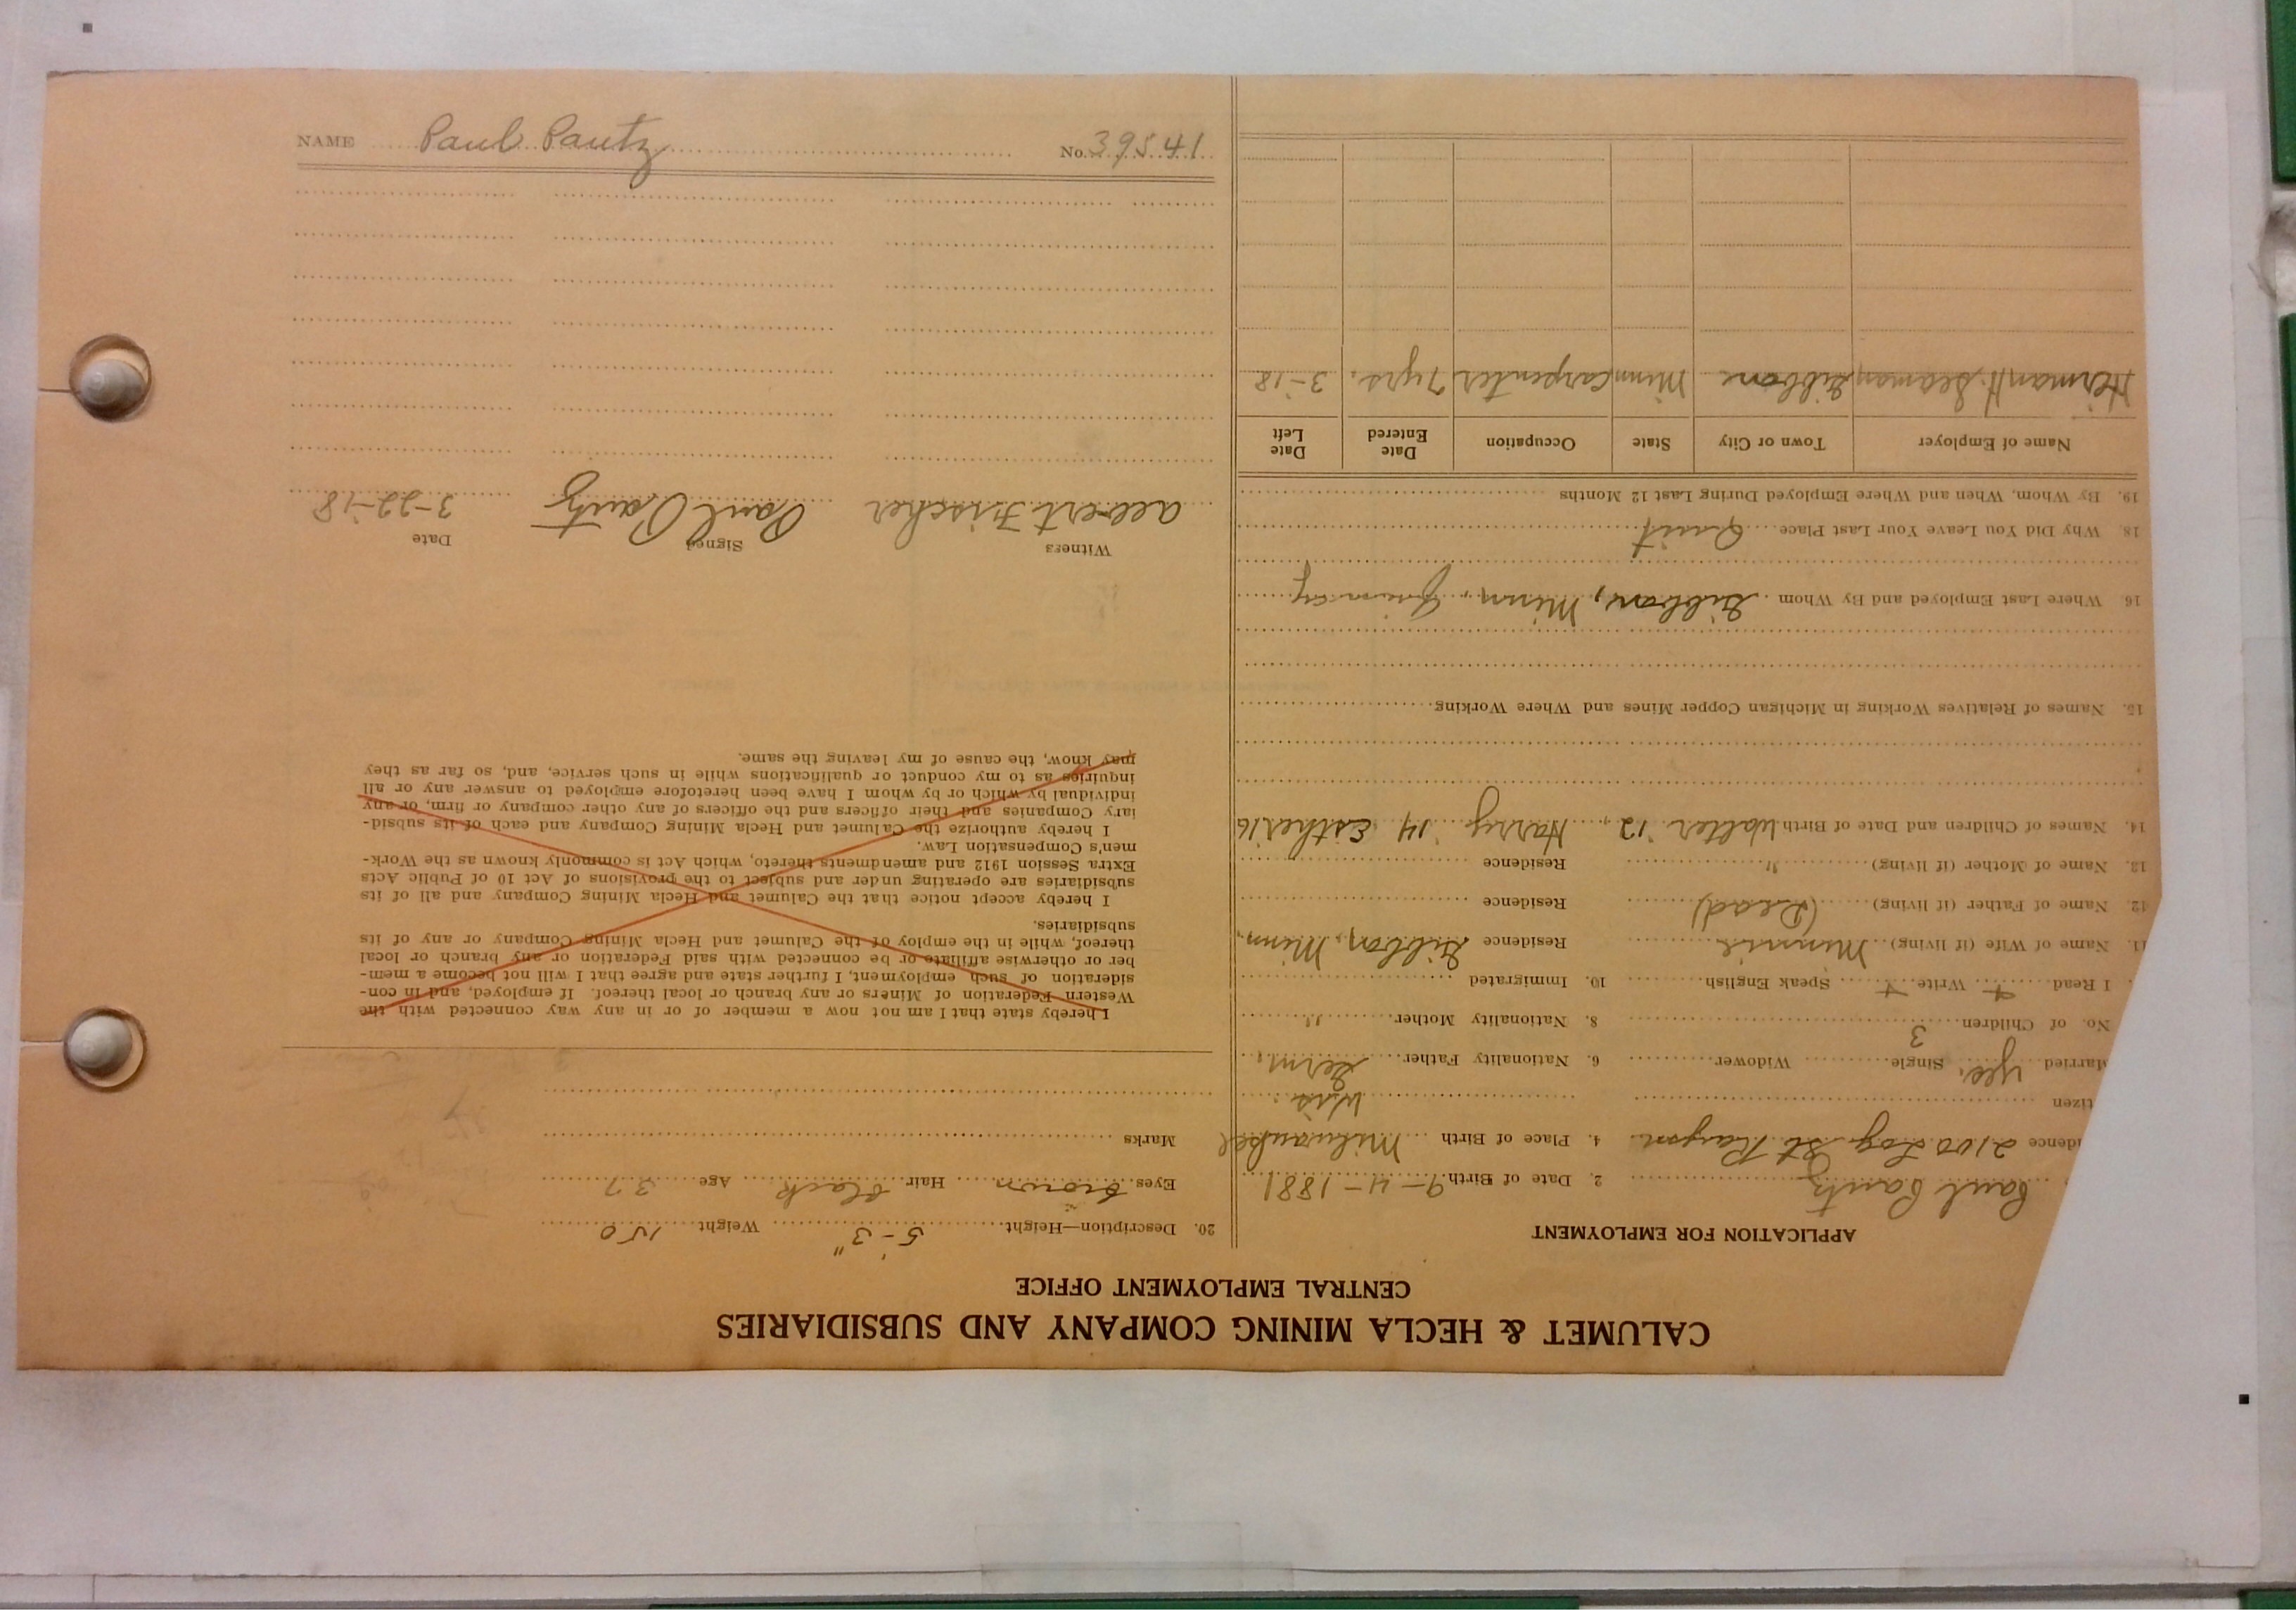 CALUMET & HECLA MINING COMPANY AND SUBSIDIARIES
CENTRAL EMPLOYMENT OFFICE
APPLICATION FOR EMPLOYMENT
Paul Pautz 2. Date of Birth 9-4-1881
idence 2100 Log St. 4. Place of Birth Milwaukee
tizen Wis.
Married yes. Single Widower 6. Nationality Father Germ.
No. of Children 3 8. Nationality Mother "
I Read + Write + Speak English 10. Immigrated
11. Name of Wife (if living) Minnie Residence Gibbon, Minn.
12. Name of Father (if living) (Dead) Residence
13. Name of Mother (if living) " Residence
14. Names of Children and Date of Birth Walter '12, Harry '14 Esther 16
15. Names of Relatives Working in Michigan Copper Mines and Where Working
16. Where Last Employed and By Whom Gibbon, Minn,
18. Why Did You Leave Your Last Place Quit
19. By Whom, When and Where Employed During Last 12 Months
Name of Employer Town or City State Occupation Date Entered Date Left
Herman H. Seaman Gibbon Minn Carpenter 7 yrs. 3-18
20. Description—Height 5'-3" Weight 150
Eyes brown Hair black Age 37
Marks
I hereby state that I am not now a member of or in any way connected with the
Western Federation of Miners or any branch or local thereof. If employed, and in con-
sideration of such employment, I further state and agree that I will not become a mem-
ber or otherwise affiliate or be connected with said Federation or any branch or local
thereof, while in the employ of the Calumet and Hecla Mining Company or any of its
subsidiaries.
I hereby accept notice that the Calumet and Hecla Mining Company and all of its
subsidiaries are operating under and subject to the provisions of Act 10 of Public Acts
Extra Session 1912 and amendments thereto, which Act is commonly known as the Work-
men's Compensation Law.
I hereby authorize the Calumet and Hecla Mining Company and each of its subsid-
iary Companies and their officers and the officers of any other company or firm, or any
individual by which or by whom I have been heretofore employed to answer any or all
inquiries as to my conduct or qualifications while in such service, and, so far as they
may know, the cause of my leaving the same.
Witness Signed Date
Albert Fischer Paul Pautz 3-22-18
NAME Paul Pautz No. 39541